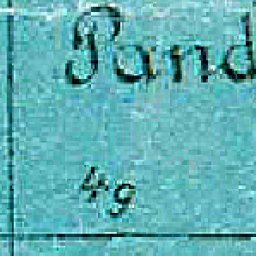 Pand
4g